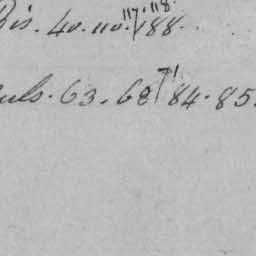 117.118.
Bis. 40. 110. 188.
71
uls. 63. 68 84. 85.